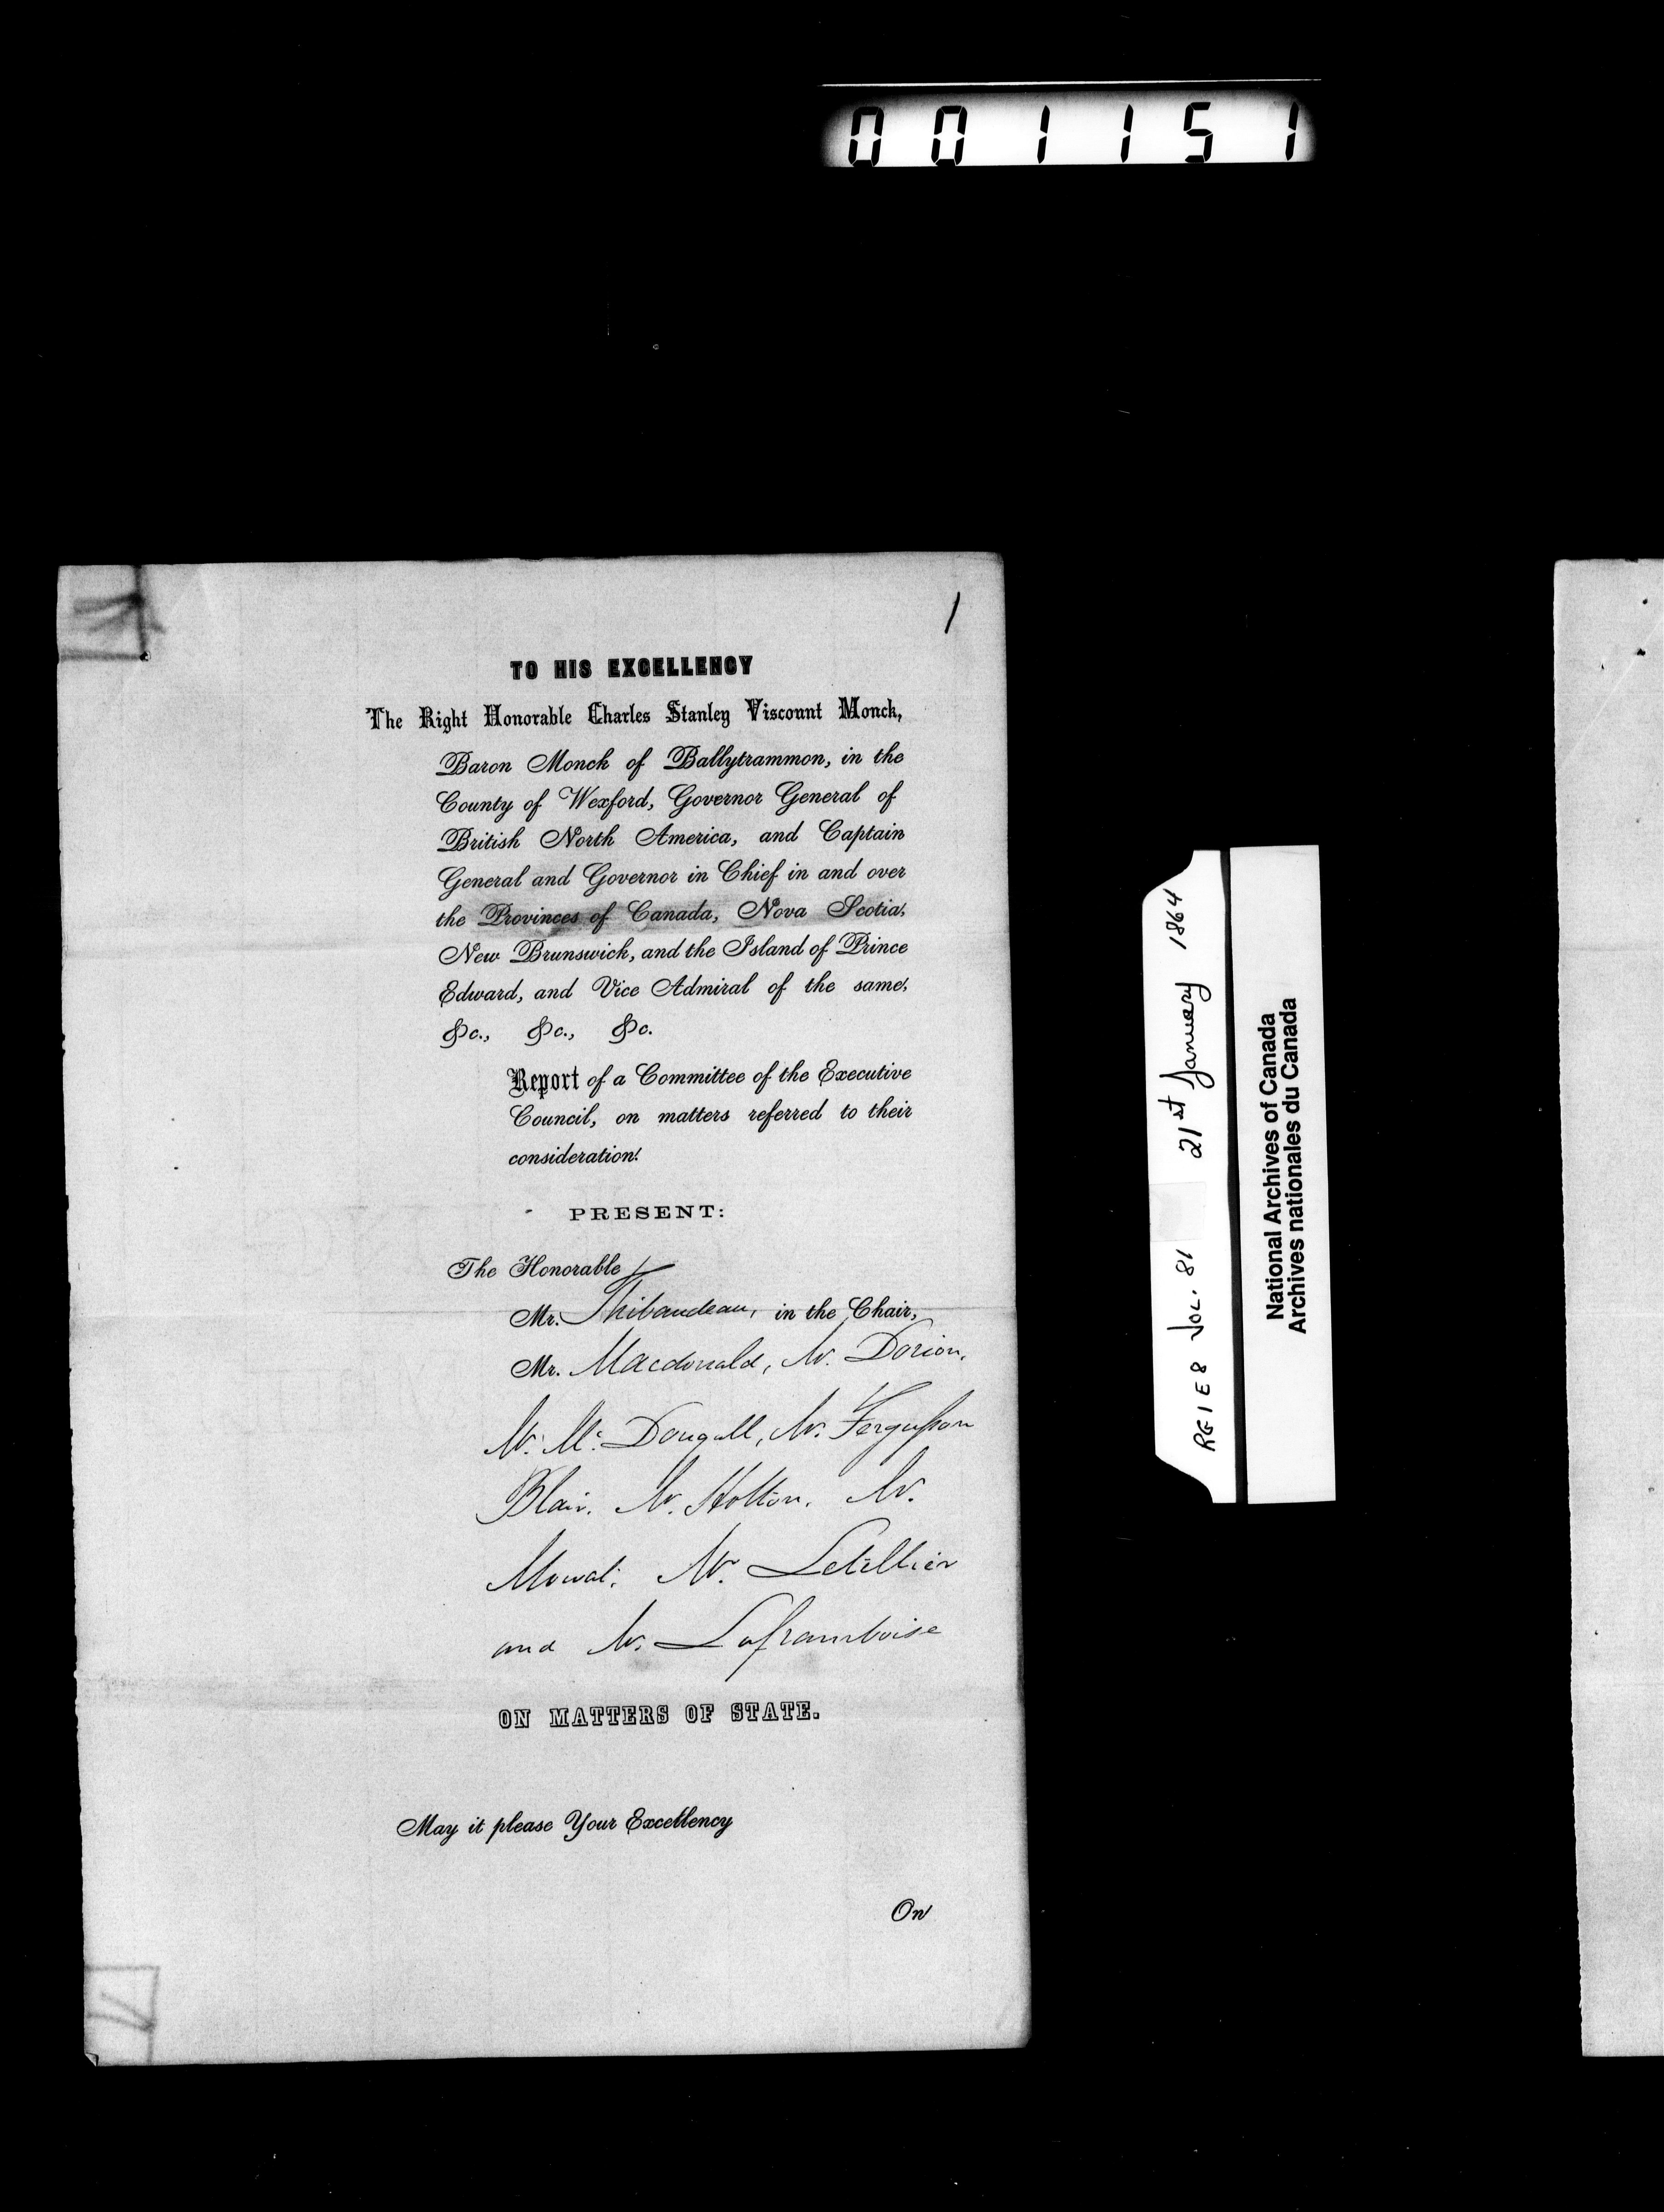 001151
1
TO HIS EXCELLENCY
The Right Honorable Charles Stanley Viscount Monck,
Baron Monck of Ballytrammon, in the
County of Wexford, Governor General of
British North America, and Captain
General and Governor in Chief in and over
the Provinces of Canada, Nova Scotia,
New Brunswick, and the Island of Prince
Edward, and Vice Admiral of the same,
&c., &c., &c.
Report of a Committee of the Executive
Council, on matters referred to their
consideration.
PRESENT:
The Honorable
Mr. Thibaudeau, in the Chair,
Mr. Macdonald, Mr. Dorion,
Mr. Mc. Dougall, Mr. Fergusson
Blair. Mr. Holton. Mr.
Mowat. Mr. Letellier
and Mr. Laframboise
ON MATTERS OF STATE.
May it please Your Excellency
On
RG 1 E 8 VOL. 81 21st January 1864
National Archives of Canada
Archives nationales du Canada